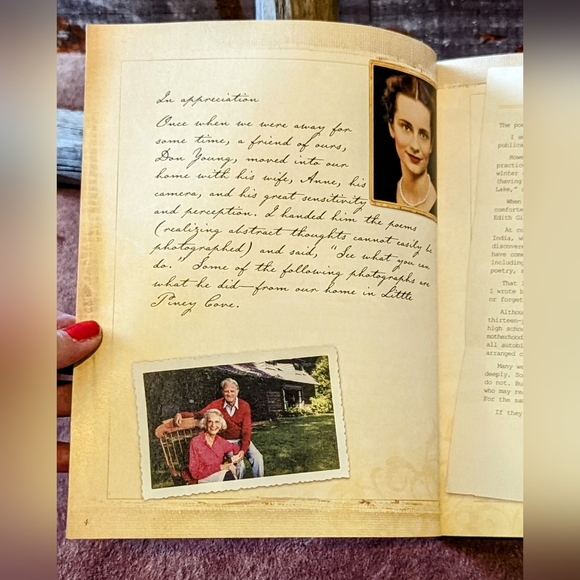 In appreciation
Once when we were away for
some time, a friend of ours,
Don Young, moved into our
home with his wife, Anne, his
camera, and his great sensitivity
and perception. I handed him the poems
(realizing abstract thoughts cannot easily be
photographed) and said, "See what you can
do." Some of the following photographs are
what he did—from our home in Little
Piney Cove.
4
The po
I am
public
Howe
practic
winter
(having
Lake,"
When
comforte
Edith G
At co
India, w
discover
have com
including
poetry,
That
I wrote b
or forget
Althou
thirteen-
high scho
motherhood
all autobi
arranged c
Many we
deeply. So
do not. Bu
who may re
For the sa
If they